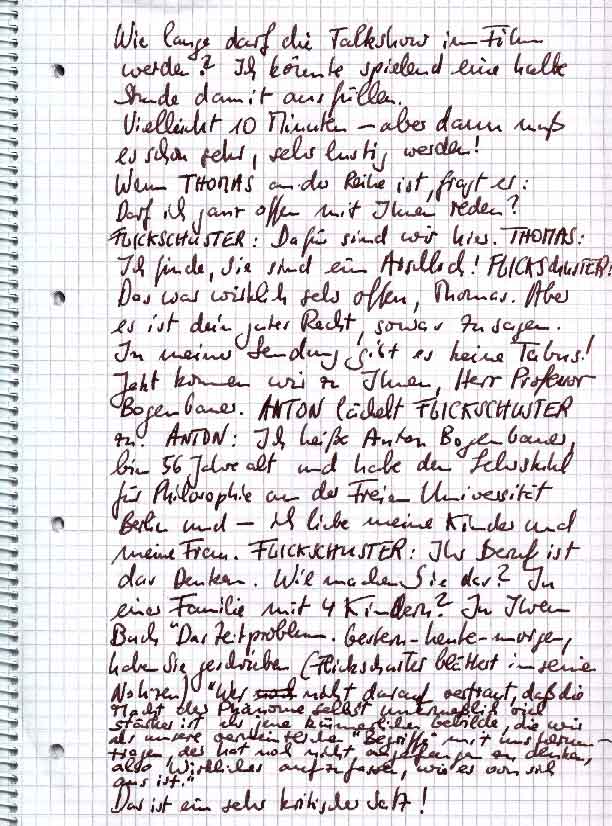 Wie lange darf die Talkshow im Film
werden? Ich könnte spielend eine halbe
Stunde damit ausfüllen.
Vielleicht 10 Minuten – aber dann muß
es schon sehr, sehr lustig werden!
Wenn THOMAS an der Reihe ist, fragt er:
Darf ich ganz offen mit Ihnen reden?
FLICKSCHUSTER: Dafür sind wir hier. THOMAS:
Ich finde, Sie sind ein Arschloch! FLICKSCHUSTER:
Das war wirklich sehr offen, Thomas. Aber
es ist dein gutes Recht, sowas zu sagen.
In meiner Sendung gibt es keine Tabus!
Jetzt kommen wir zu Ihnen, Herr Professor
Bogenbauer. ANTON lächelt FLICKSCHUSTER
zu. ANTON: Ich heiße Anton Bogenbauer,
bin 56 Jahre alt und habe den Lehrstuhl
für Philosophie an der Freien Universität
Berlin und – ich liebe meine Kinder und
meine Frau. FLICKSCHUSTER: Ihr Beruf ist
das Denken. Wie machen Sie das? In
einer Familie mit 4 Kindern? In Ihrem
Buch "Das Zeitproblem. Gestern-heute-morgen,
haben Sie geschrieben (Flickschuster blättert in seinen
Notizen) "Wer nicht darauf vertraut, daß die
Macht der Phänomene selbst unermeßlich viel
stärker ist als jene kümmerlichen Gebilde, die wir
als unsere "Begriffe" mit uns herum-
tragen, der hat noch nicht angefangen zu denken,
also Wirkliches aufzufassen, wie es von sich
aus ist."
Das ist ein sehr kritischer Satz!